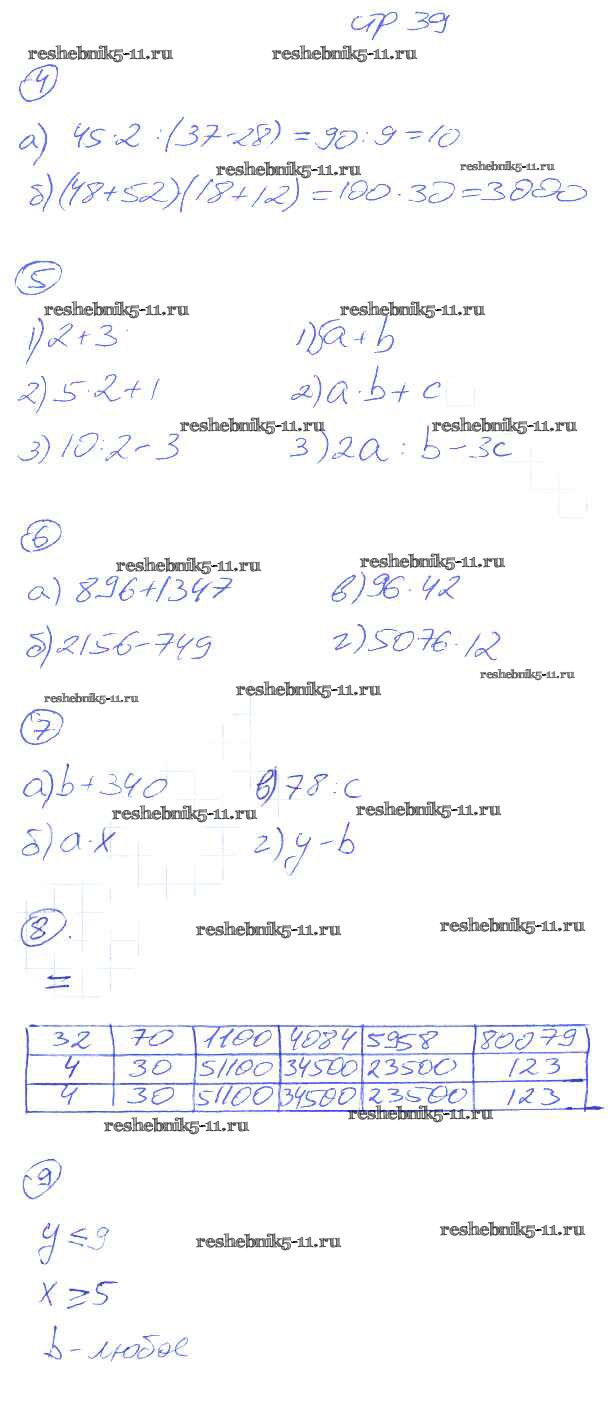 стр 39
reshebnik5-11.ru reshebnik5-11.ru
4
а) 45·2 :(37-28) = 90:9 = 10
reshebnik5-11.ru reshebnik5-11.ru
б) (48+52)(18+12) = 100·30 = 3000
5
reshebnik5-11.ru reshebnik5-11.ru
1) 2+3 1) a+b
2) 5·2+1 2) a·b+c
reshebnik5-11.ru reshebnik5-11.ru
3) 10:2-3 3) 2a : b-3c
6
reshebnik5-11.ru reshebnik5-11.ru
а) 896+1347 в) 96·42
б) 2156-749 г) 5076·12
reshebnik5-11.ru reshebnik5-11.ru reshebnik5-11.ru
7
а) b+340 в) 78:c
reshebnik5-11.ru reshebnik5-11.ru
б) a·x г) y-b
8.
reshebnik5-11.ru reshebnik5-11.ru
=
32 70 1100 4084 5958 80079
4 30 51100 34500 23500 123
4 30 51100 34500 23500 123
reshebnik5-11.ru reshebnik5-11.ru
9
y ≤ 9
reshebnik5-11.ru reshebnik5-11.ru
x ≥ 5
b - любое